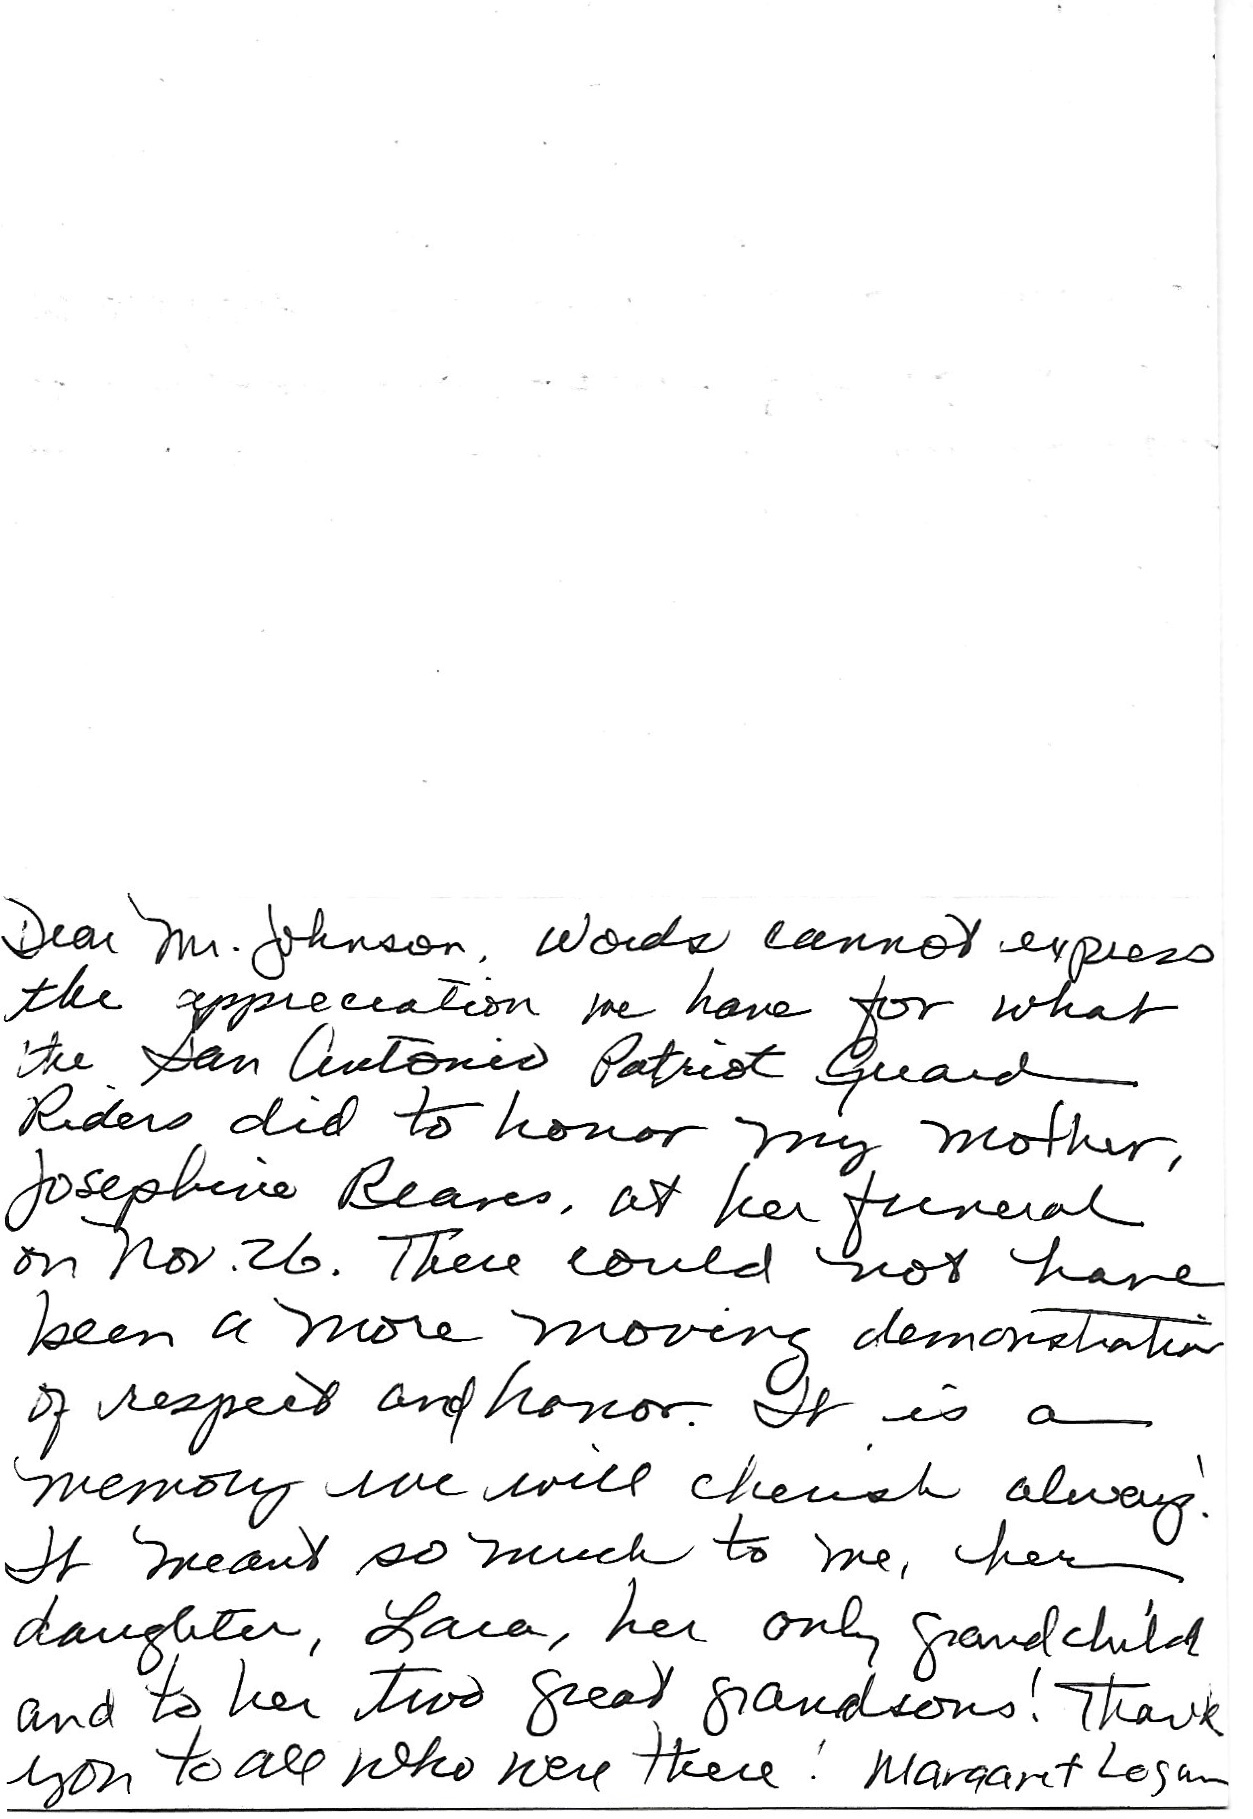 Dear Mr. Johnson, Words cannot express
the appreciation we have for what
the San Antonio Patriot Guard
Riders did to honor my mother,
Josephine Beaves, at her funeral
on Nov. 26. There could not have
been a more moving demonstration
of respect and honor. It is a
memory we will cherish always!
It meant so much to me, her
daughter, Lara, her only grandchild
and to her two great grandsons! Thank
you to all who were there! Margaret Logan